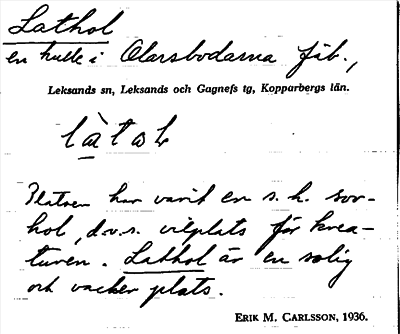 Lathol
en kulle i Olarsbodarna fäb.,
Leksands sn, Leksands och Gagnefs tg, Kopparbergs län.
Platsen har varit en s. k. sov-
hol, d.v.s. vilplats för krea-
turen. Lathol är en solig
och vacker plats.
ERIK M. CARLSSON, 1936.